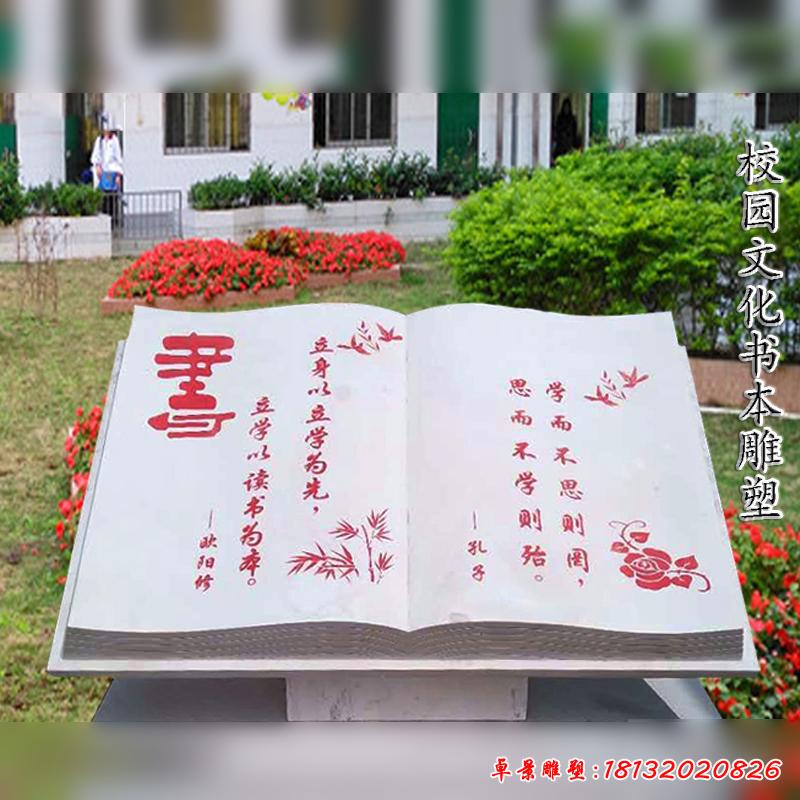 校园文化书本雕塑
書
立身以立学为先，
立学以读书为本。
—欧阳修
学而不思则罔，
思而不学则殆。
—孔子
卓景雕塑:18132020826